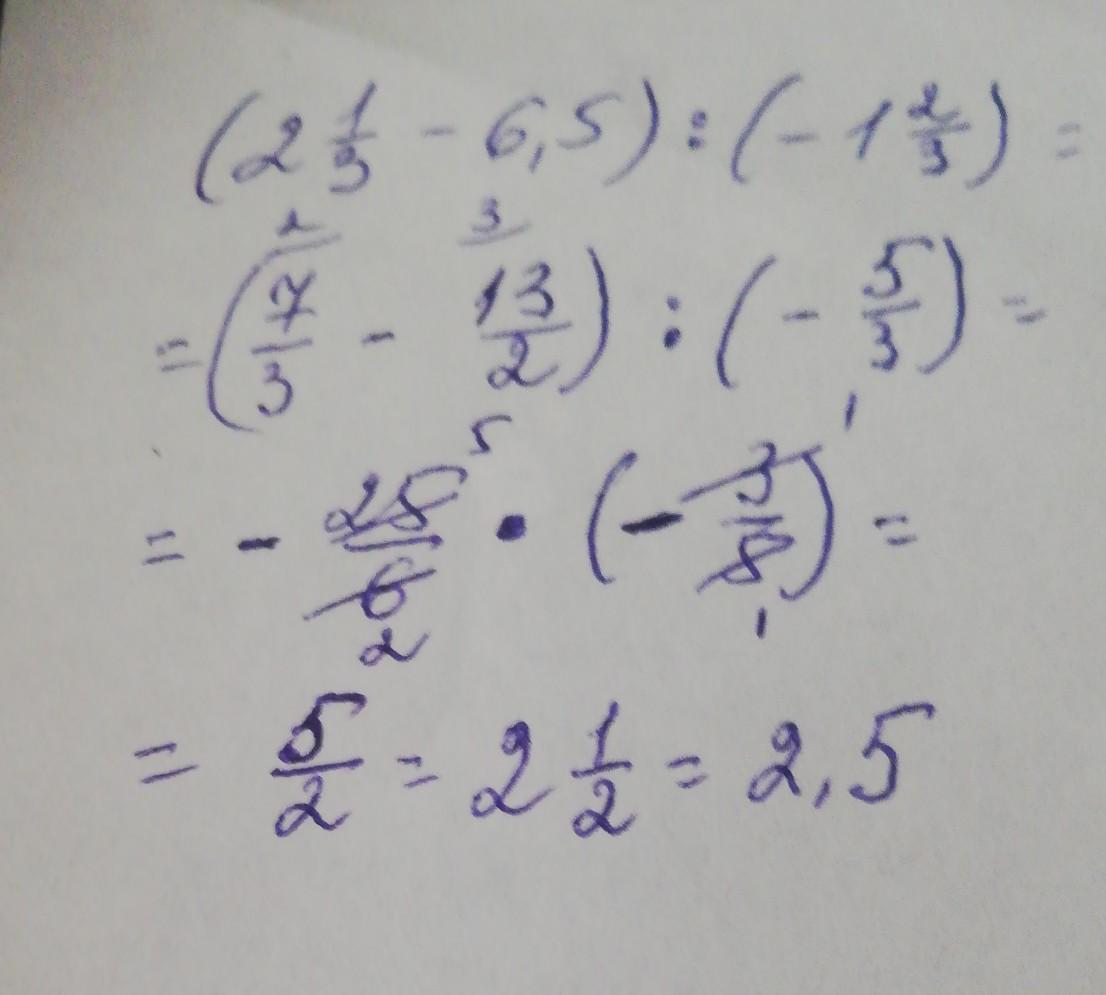 (2 1/3 - 6,5) : (- 1 2/3) =
= (7/3 - 13/2) : (- 5/3) =
= - 25/6 · (- 3/8) =
= 5/2 = 2 1/2 = 2,5